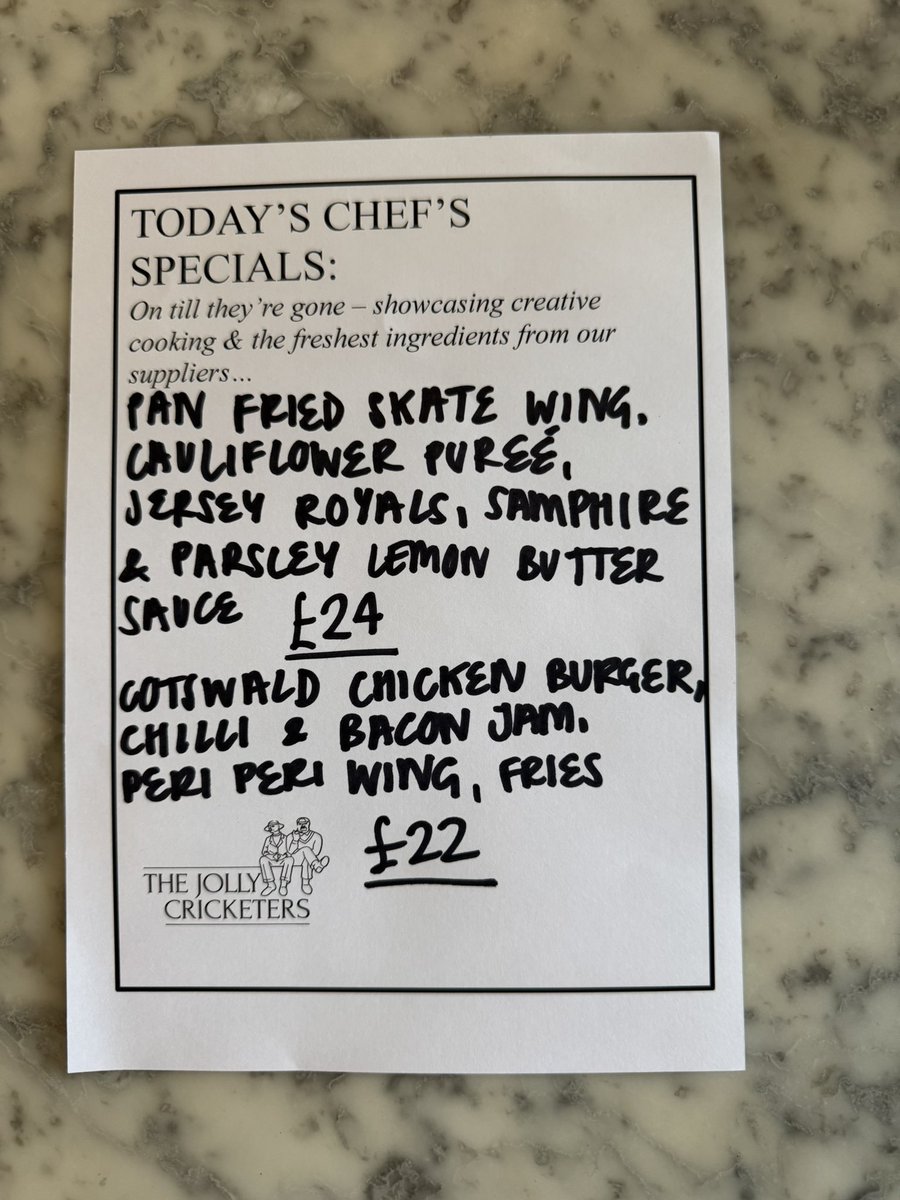 TODAY'S CHEF'S
SPECIALS:
On till they're gone – showcasing creative
cooking & the freshest ingredients from our
suppliers...
PAN FRIED SKATE WING.
CAULIFLOWER PUREÉ,
JERSEY ROYALS, SAMPHIRE
& PARSLEY LEMON BUTTER
SAUCE £24
COTSWALD CHICKEN BURGER,
CHILLI & BACON JAM.
PERI PERI WING, FRIES
£22
THE JOLLY
CRICKETERS